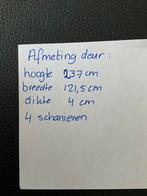 Afmeting deur :
hoogte 237 cm
breedte 121,5 cm
dikte 4 cm
4 schanieren